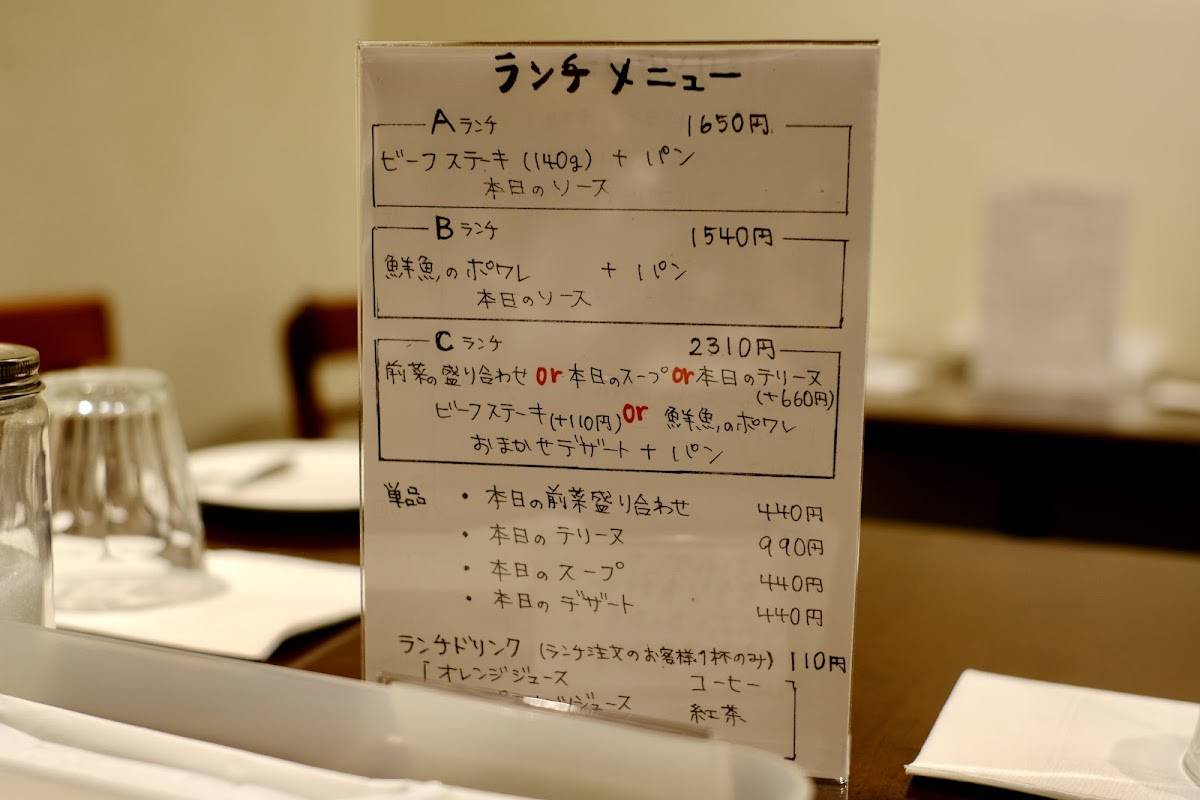 ランチ メニュー
A ランチ 1650円
ビーフステーキ (140g) + パン
本日のソース
B ランチ 1540円
鮮魚のポワレ + パン
本日のソース
C ランチ 2310円
前菜の盛り合わせ or 本日のスープ or 本日のテリーヌ
(+660円)
ビーフステーキ(+110円) or 鮮魚のポワレ
おまかせデザート + パン
単品 ・本日の前菜盛り合わせ 440円
・本日のテリーヌ 990円
・本日のスープ 440円
・本日のデザート 440円
ランチドリンク (ランチ注文のお客様1杯のみ) 110円
「オレンジジュース コーヒー
ジュース 紅茶